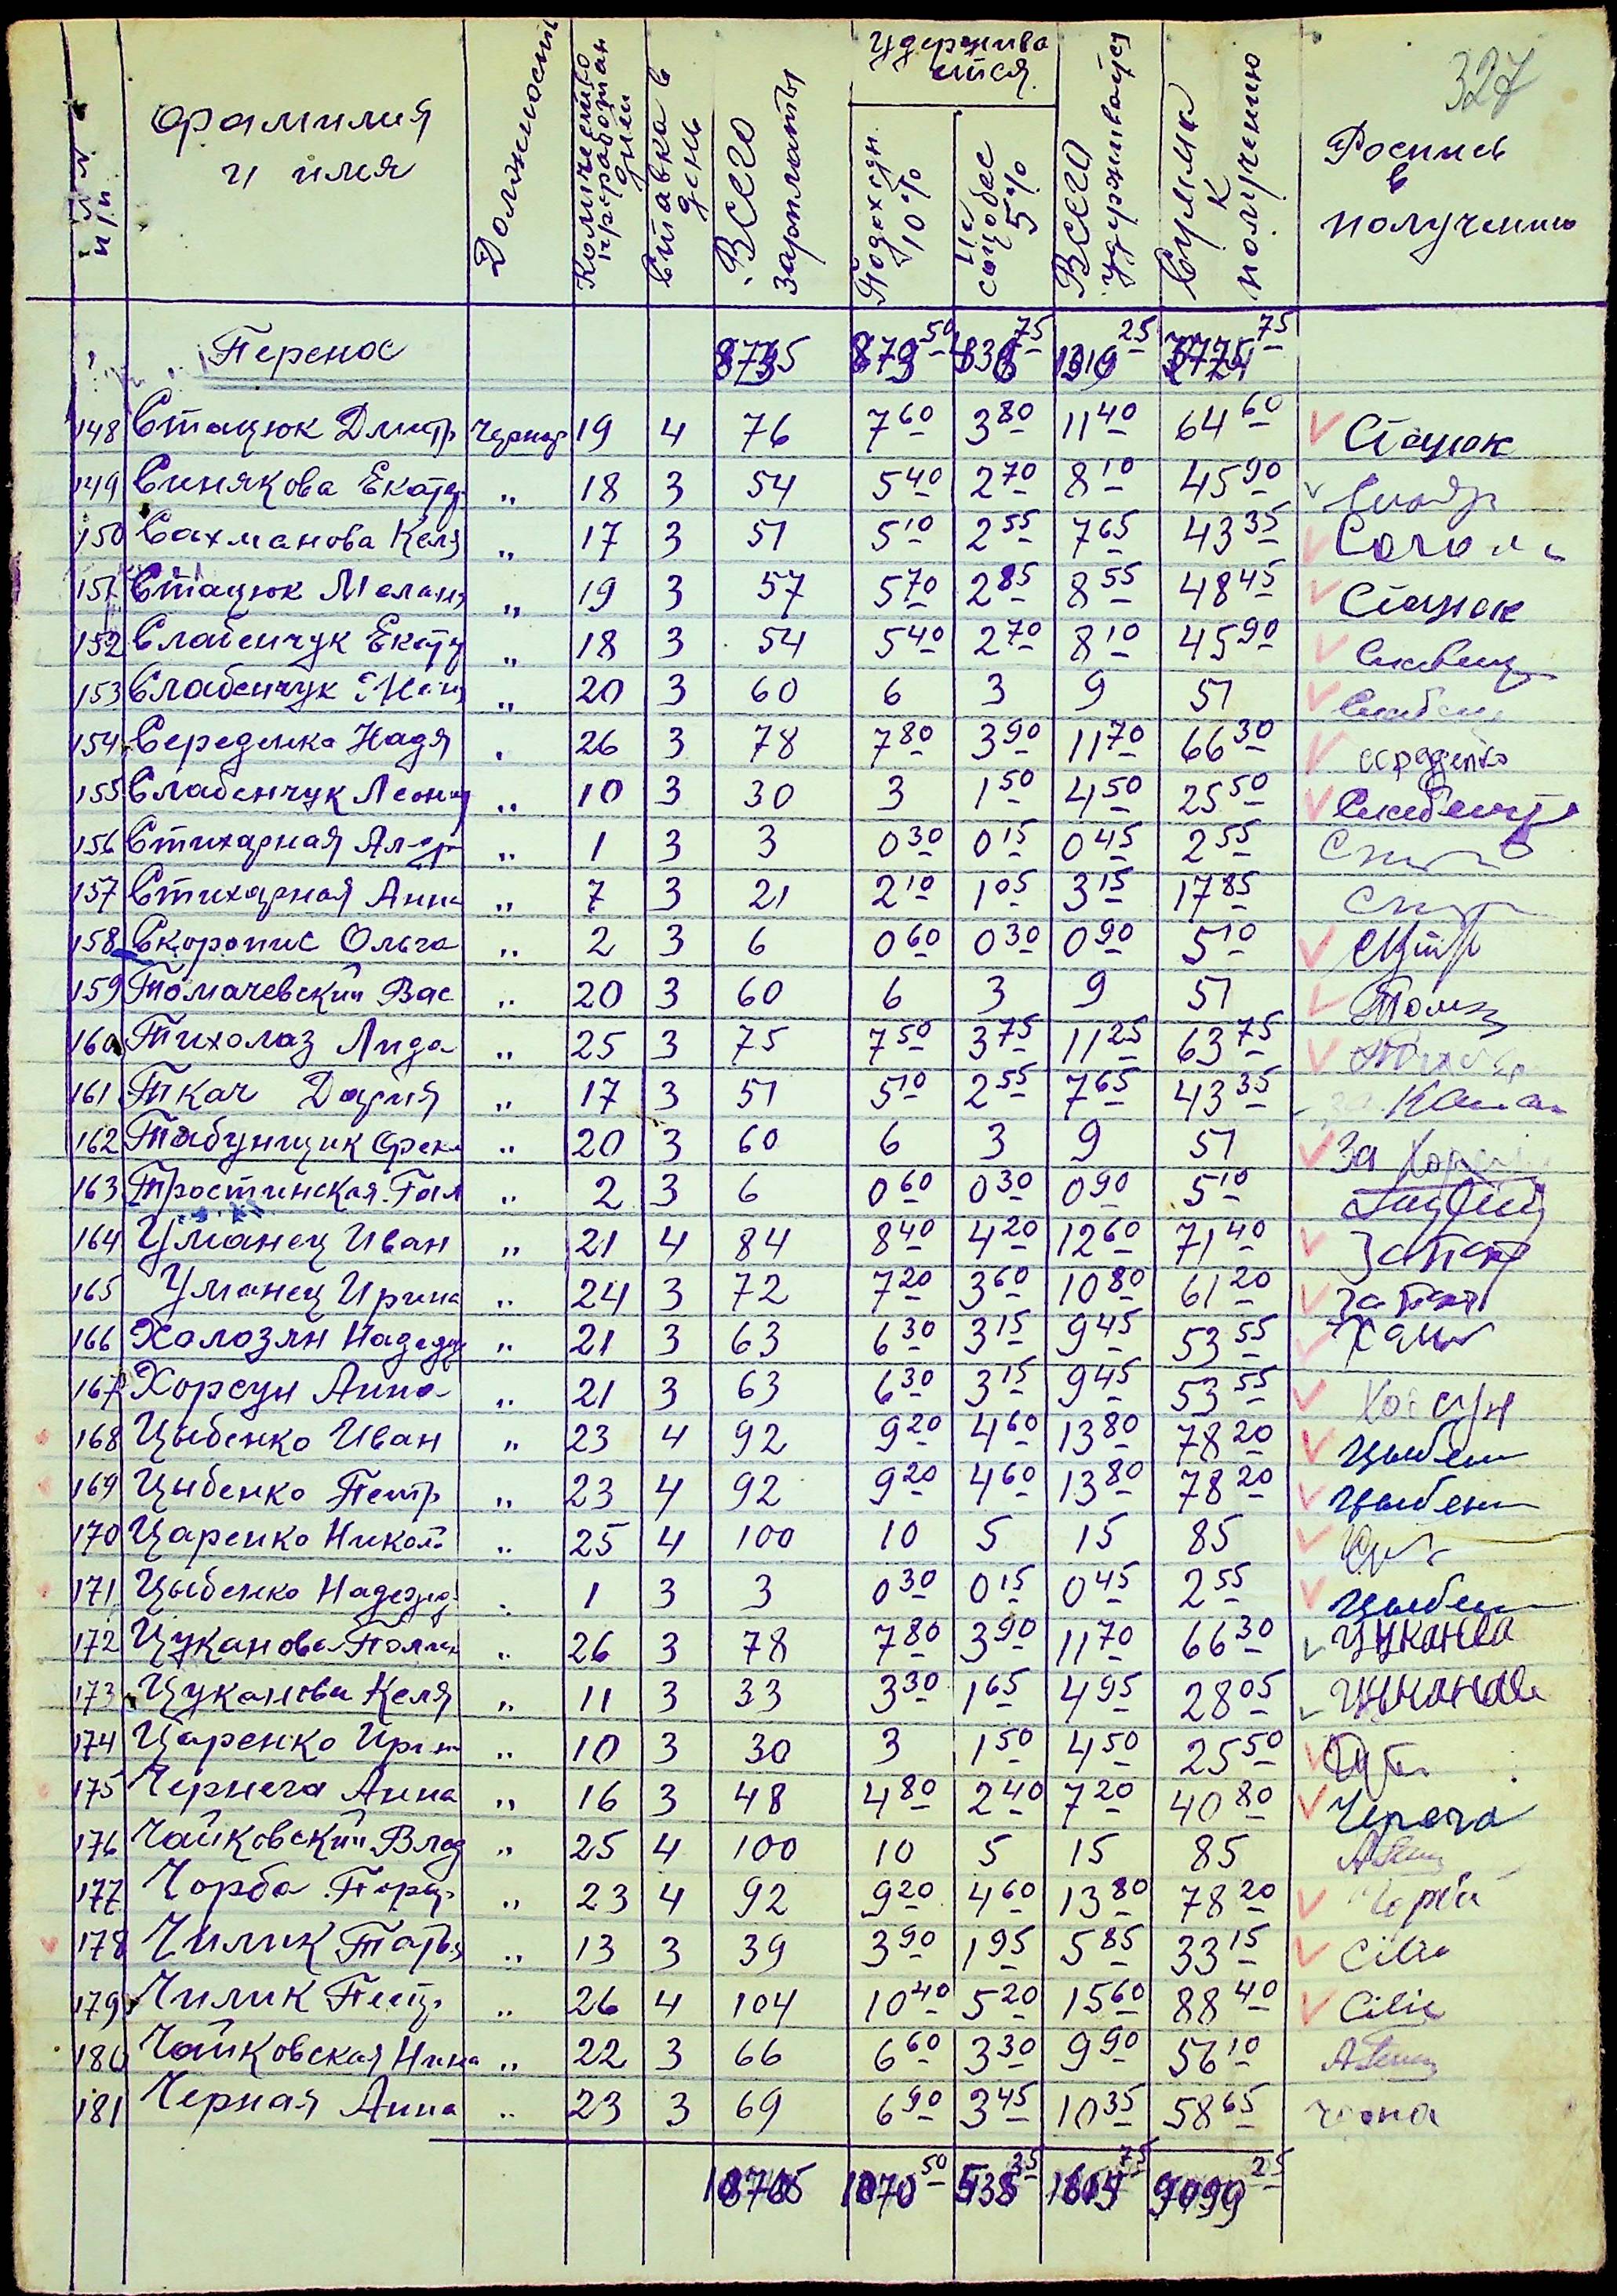 327
№№ п/п
Фамилия и имя
Должность
Количество проработан дней
Ставка в день
Всего зарплаты
Удерживается
Подоходн. 10%
5%
Всего удерживается
Сумма к получению
Роспись в получению
Перенос
148 Стацюк Дмитр Чернор 19 4 76 7 60 3 80 11 40 64 60 Стацюк
149 Синякова Екатер „ 18 3 54 5 40 2 70 8 10 45 90
150 Сахманова Келя „ 17 3 51 5 10 2 55 7 65 43 35
151 Стацюк Мелань „ 19 3 57 5 70 2 85 8 55 48 45 Стацюк
152 Слабенчук Екатер „ 18 3 54 5 40 2 70 8 10 45 90
153 Слабенчук „ 20 3 60 6 3 9 51
154 Середенко Надя „ 26 3 78 7 80 3 90 11 70 66 30
155 Слабенчук Леонид „ 10 3 30 3 1 50 4 50 25 50
156 Стихарная „ 1 3 3 0 30 0 15 0 45 2 55
157 Стихарная Анна „ 7 3 21 2 10 1 05 3 15 17 85
158 Скоропис Ольга „ 2 3 6 0 60 0 30 0 90 5 10
159 Томачевский Вас „ 20 3 60 6 3 9 51
160 Тихолаз Лида „ 25 3 75 7 50 3 75 11 25 63 75
161 Ткач Дария „ 17 3 51 5 10 2 55 7 65 43 35
162 Табунщик „ 20 3 60 6 3 9 51 За
163 Тростинская Гал „ 2 3 6 0 60 0 30 0 90 5 10
164 Уманец Иван „ 21 4 84 8 40 4 20 12 60 71 40
165 Уманец Ирина „ 24 3 72 7 20 3 60 10 80 61 20
166 Халозян Надежд „ 21 3 63 6 30 3 15 9 45 53 55
167 Хорсун Анна „ 21 3 63 6 30 3 15 9 45 53 55 Хорсун
168 Цыбенко Иван „ 23 4 92 9 20 4 60 13 80 78 20 Цыбен
169 Цыбенко Петр „ 23 4 92 9 20 4 60 13 80 78 20 Цыбен
170 Царенко Никол „ 25 4 100 10 5 15 85
171 Цыбенко Надежд „ 1 3 3 0 30 0 15 0 45 2 55 Цыбен
172 Цуканова Полин „ 26 3 78 7 80 3 90 11 70 66 30
173 Цуканова Келя „ 11 3 33 3 30 1 65 4 95 28 05
174 Царенко Ирин „ 10 3 30 3 1 50 4 50 25 50
175 Чернега Анна „ 16 3 48 4 80 2 40 7 20 40 80
176 Чайковский Влад „ 25 4 100 10 5 15 85
177 Чорба „ 23 4 92 9 20 4 60 13 80 78 20
178 Чилик Татья „ 13 3 39 3 90 1 95 5 85 33 15 Cilic
179 Чилик Петр „ 26 4 104 10 40 5 20 15 60 88 40 Cilic
180 Чайковская Нина „ 22 3 66 6 60 3 30 9 90 56 10
181 Черная Анна „ 23 3 69 6 90 3 45 10 35 58 65